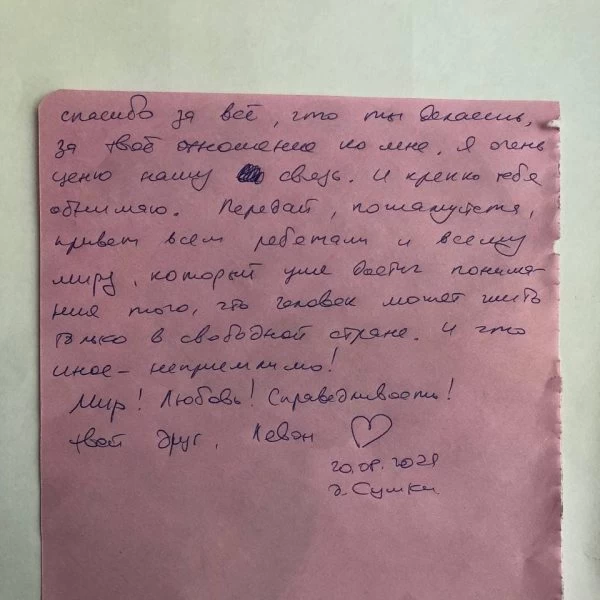 спасибо за всё, что ты делаешь,
за твоё отношение ко мне. Я очень
ценю нашу связь. И крепко тебя
обнимаю. Передай, пожалуйста,
привет всем ребятам и всему
миру, который уже достиг понима-
ния того, что человек может жить
только в свободной стране. И что
иное – неприемлимо!
Мир! Любовь! Справедливость!
твой друг, Кеван ♡
20.08.2021
г. Сумки